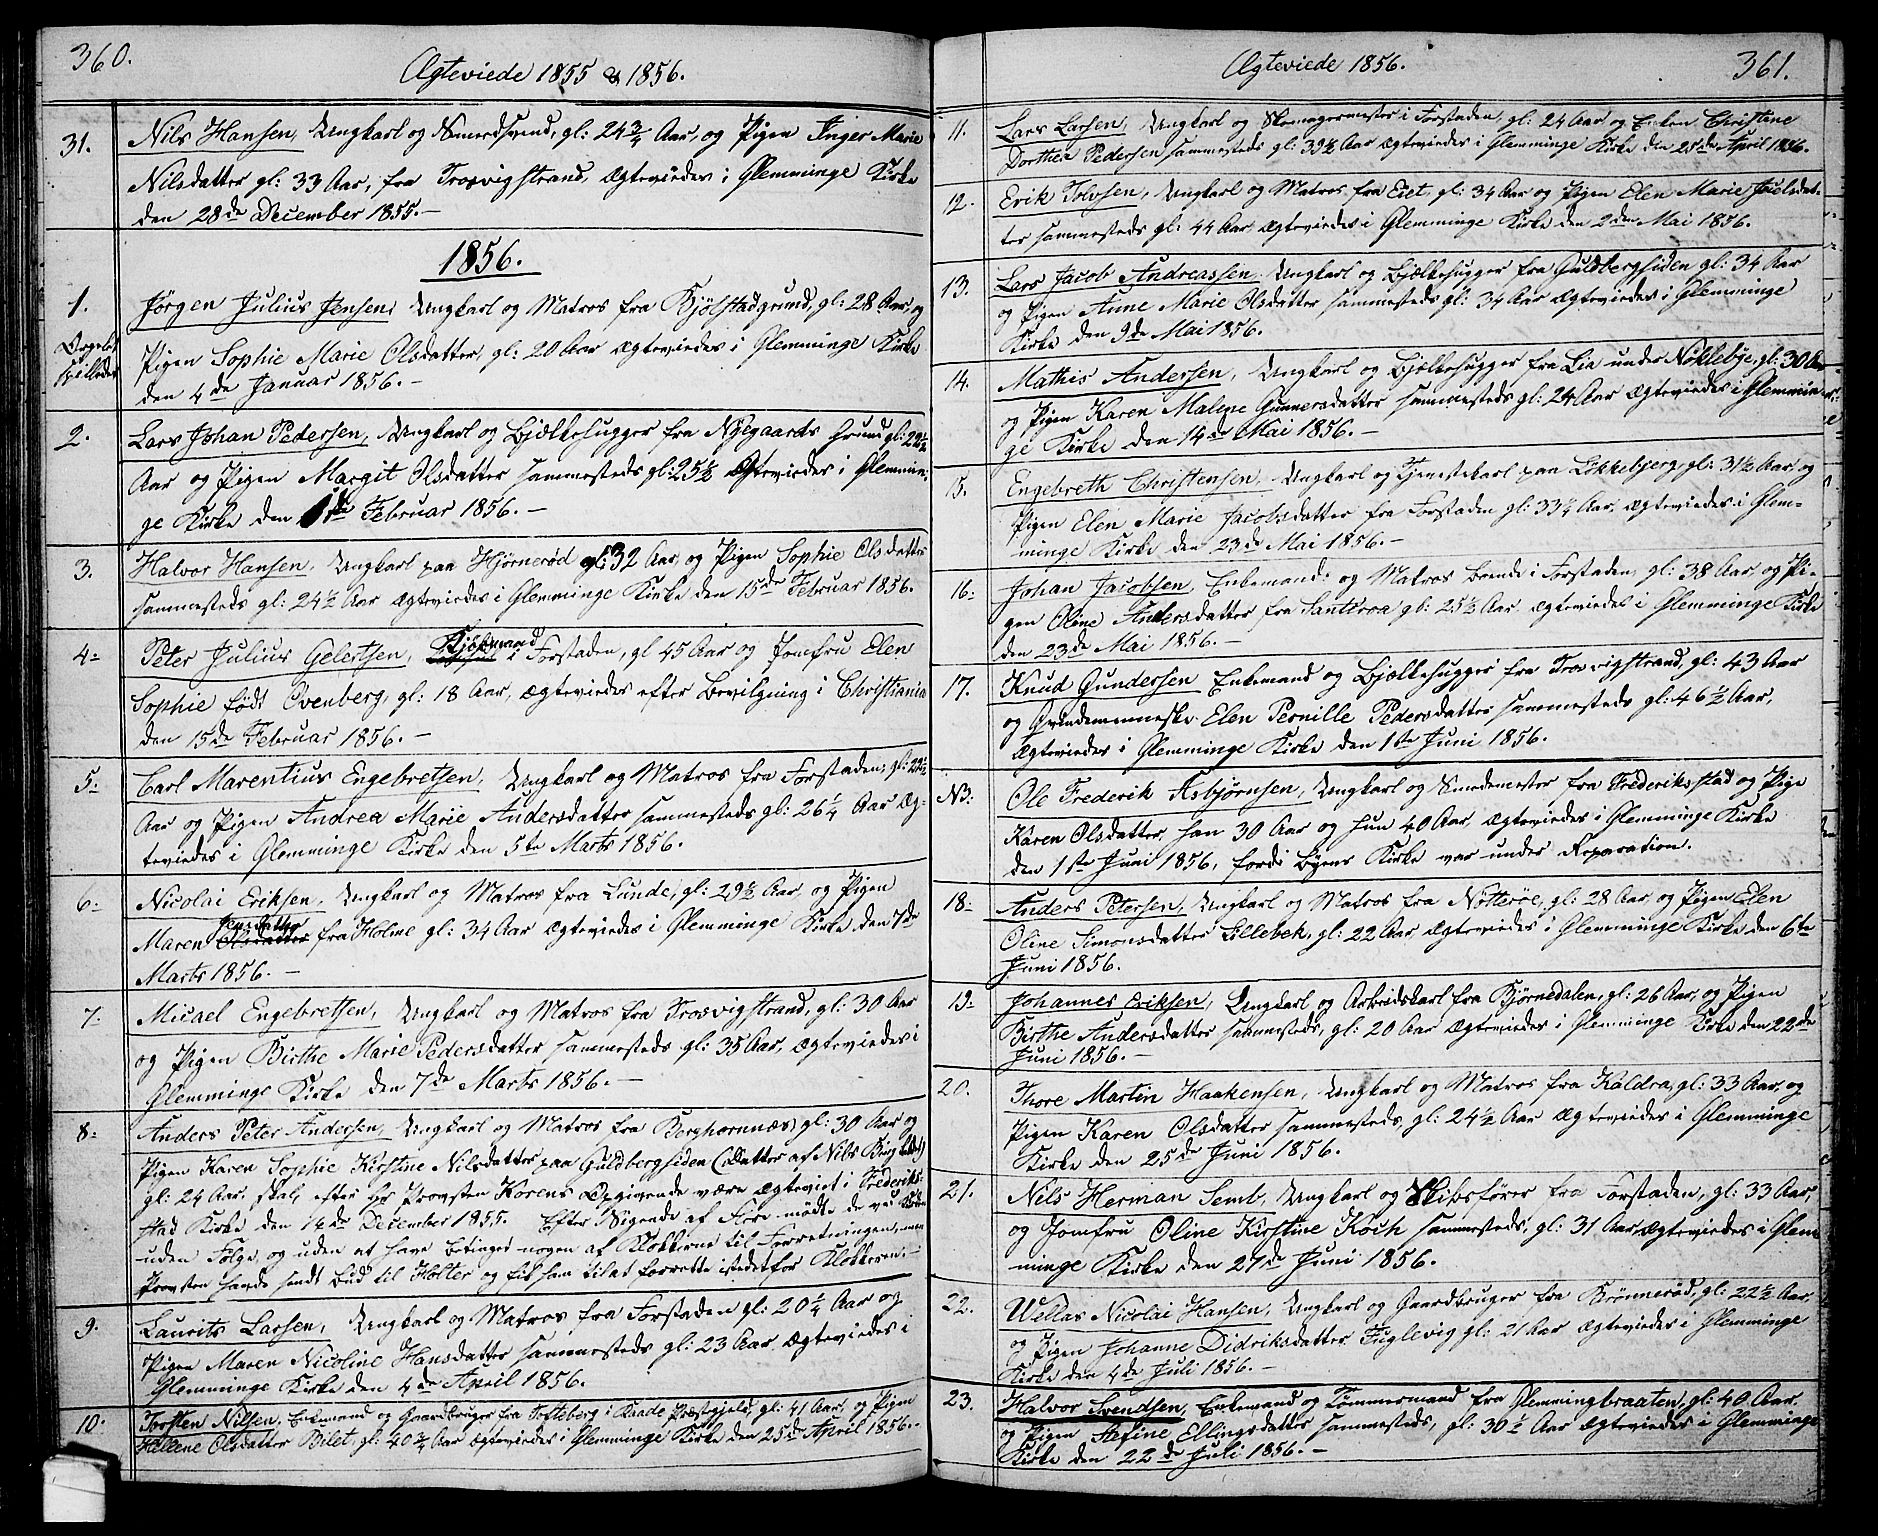 360.
Ægteviede 1855 & 1856.
31. Nils Hansen, Ungkarl og Smedsvend, gl: 24 3/4 Aar, og Pigen Inger Marie
Nilsdatter gl: 33 Aar, fra Trosvigstrand, ægteviedes i Glemminge Kirke
den 28de December 1855.-
1856.
1. Jörgen Julius Jensen, Ungkarl og Matros fra Kjölstadgrund, gl: 28 Aar, og
Orgelet
spilledes
Pigen Sophie Marie Olsdatter, gl: 20 Aar ægteviedes i Glemminge Kirke
den 4de Januar 1856.-
2. Lars Johan Pedersen, Ungkarl og Bjelkehugger fra Nygaards Grund gl: 22 1/2
Aar og Pigen Margit Olsdatter sammesteds gl: 25 1/2 Ægteviedes i Glemmin-
ge Kirke den 1ste Februar 1856.-
3. Halvor Hansen, Ungkarl paa Hjørnerød gl: 32 Aar, og Pigen Sophie Olsdatter
sammesteds gl: 24 1/2 Aar ægteviedes i Glemminge Kirke den 15de Februar 1856.
4. Peter Julius Gelertsen, Kjöbmand i Forstaden, gl 45 Aar og Jomfru Elen
Sophie født Ovenberg, gl: 18 Aar, ægteviedes efter Bevilgning i Christiania
den 15de Februar 1856.-
5. Carl Marentius Engebretsen, Ungkarl og Matros fra Forstaden, gl: 22 1/2
Aar og Pigen Andrea Marie Andersdatter sammesteds gl: 26 1/4 Aar Æg-
teviedes i Glemminge Kirke den 5te Marts 1856.
6. Nicolai Eriksen, Ungkarl og Matros fra Lunde, gl: 29 1/2 Aar og Pigen
Jensdatter
Maren Olsdatter fra Holme gl: 34 Aar ægteviedes i Glemminge Kirke, den 7de
Marts 1856.-
7. Micael Engebretsen, Ungkarl og Matros fra Trosvigstrand, gl: 30 Aar
og Pigen Birthe Marie Pedersdatter sammesteds gl: 35 Aar, ægteviedes i
Glemminge Kirke den 7de Marts 1856.-
8. Anders Peter Andersen, Ungkarl og Matros fra Berghornnæs, gl: 30 Aar og
Pigen Karen Sophie Kirstine Nilsdatter paa Guldbergsiden (Datter af Nils
gl: 24 Aar. skal, efter Hr. Provsten Korens Opgivende være ægteviet i Frederik-
stad Kirke den 14de December 1855. Efter Sigende af Flere mødte de ved Kirken
uden Følge, og uden at have betinget nogen af Klokkerne til Forretningen, men
Provsten havde sendt Bud til Holter og fik ham til at forrette istedetfor Klokkeren.-
9. Laurits Larsen, Ungkarl og Matros fra Forstaden gl: 20 1/4 Aar og
Pigen Maren Nicoline Hansdatter sammesteds gl: 23 Aar. Ægteviedes i
Glemminge Kirke den 4de April 1856.
10. Torsten Nilsen, Enkemand og Gaardbruger fra Tofteberg i Raade Præstegjeld, gl: 41 Aar, og Pigen
Hellene Olsdatter Bilet, gl: 40 3/4 Aar ægteviedes i Glemminge Kirke den 25de April 1856.-
Ægteviede 1856.
361.
11. Lars Larsen, Ungkarl og Skomagermester i Forstaden, gl: 24 Aar og Enken Christine
Dorthea Pedersen sammesteds gl: 39 1/2 Aar ægteviedes i Glemminge Kirke den 25de April 1856.
12. Erik Tolvsen, Ungkarl og Matros fra Eiet, gl: 34 Aar og Pigen Elen Marie Joelsdat-
ter sammesteds gl: 44 Aar, ægteviedes i Glemminge Kirke den 2den Mai 1856.
13. Lars Jacob Andreassen, Ungkarl og Bjelkehugger fra Guldbergsiden gl: 34 Aar
og Pigen Anne Marie Olsdatter sammesteds gl: 34 Aar ægteviedes i Glemminge
Kirke den 9de Mai 1856.
14. Mathis Andersen, Ungkarl og Bjelkehugger fra Lia under Nöklebye, gl: 30 Aar
og Pigen Karen Malene Gunnersdatter sammesteds gl: 24 Aar ægteviedes i Glemmin-
ge Kirke den 14de Mai 1856.-
15. Engebreth Christensen, Ungkarl og Tjenestekarl paa Lökkebjerg, gl: 31 1/2 Aar, og
Pigen Elen Marie Jacobsdatter fra Forstaden gl: 33 1/4 Aar, ægteviedes i Glem-
minge Kirke den 23de Mai 1856.-
16. Johan Jacobsen, Enkemand og Matros boende i Forstaden, gl: 38 Aar, og Pi-
gen Oline Andersdatter fra Santeroa gl: 25 1/2 Aar ægteviedes i Glemminge Kirke
den 23de Mai 1856.-
17. Knud Gundersen Enkemand og Bjelkehugger fra Trosvigstrand, gl: 43 Aar
og Qvindemenneske Elen Pernille Pedersdatter sammesteds gl: 46 1/2 Aar,
ægteviedes i Glemminge Kirke den 1ste Juni 1856.
NB: Ole Frederik Asbjørnsen, Ungkarl og Smedemester fra Frederiksstad og Pige
Karen Olsdatter, han 30 Aar og hun 40 Aar, ægteviedes i Glemminge Kirke
den 1ste Juni 1856, fordi Byens Kirke var under Reparation.
18. Anders Petersen, Ungkarl og Matros fra Nötteröe, gl: 28 Aar, og Pigen Elen
Oline Simonsdatter Lillebek, gl: 22 Aar ægteviedes i Glemminge Kirke den 6te
Juni 1856.
19. Johannes Eriksen, Ungkarl og Arbeidskarl fra Bjørnedalen, gl: 26 Aar, og Pigen
Birthe Andersdatter sammesteds, gl: 20 Aar ægteviedes i Glemminge Kirke den 22de
Juni 1856.-
20. Thore Martin Haakensen, Ungkarl og Matros fra Kaldra, gl: 33 Aar, og
Pigen Karen Olsdatter sammesteds, gl: 24 1/2 Aar ægteviedes i Glemminge
Kirke den 25de Juni 1856.
21. Nils Herman Semb, Ungkarl og Skibsfører fra Forstaden, gl: 33 Aar,
og Jomfru Oline Kirstine Koch sammesteds, gl: 31 Aar, ægteviedes i Glem-
minge Kirke den 27de Juni 1856.
22. Wellas Nicolai Hansen, Ungkarl og Gaardbruger fra Brønnerød, gl: 22 1/2 Aar,
og Pigen Johanne Didriksdatter Fuglevig gl: 21 Aar ægteviedes i Glemminge
Kirke den 4de Juli 1856.-
23. Halvor Svendsen, Enkemand og Tömmermand fra Glemmingbraaten, gl: 40 Aar,
og Pigen Stefine Ellingsdatter sammesteds, gl: 30 1/2 Aar ægteviedes i Glemminge
Kirke den 22de Juli 1856.-